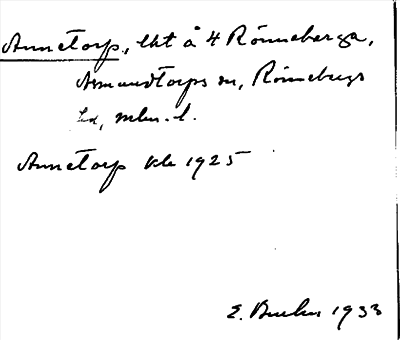 Annetorp, lht å 4 Rönneberga,
Asmundtorps sn, Rönnebergs
hd, mlm. l.
Annetorp kle 1925
E. 1933